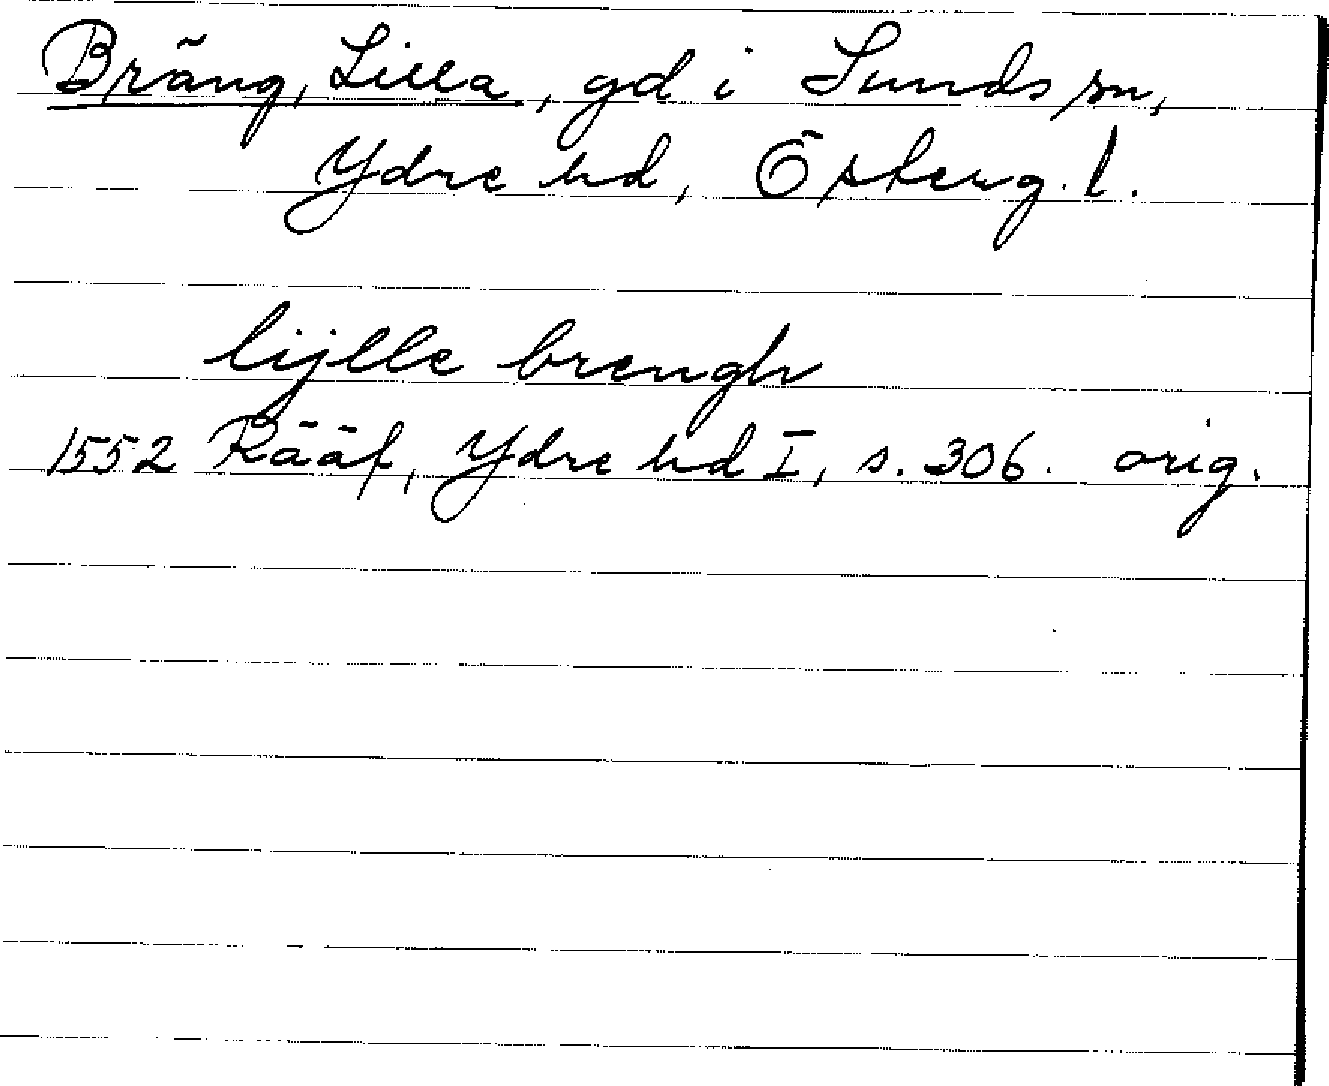 Bräng, Lilla, gd i Sunds sn,
Ydre hd, Österg. l.
lijlle brengh
1552 Rääf, Ydre hd I, s. 306. orig.